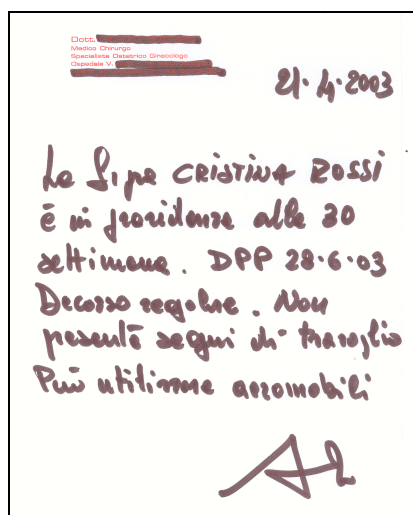 Dott.
Medico Chirurgo
Specialista Ostetrico Ginecologo
Ospedale V.
21.4.2003
La Sig.ra CRISTINA ROSSI
è in gravidanza alla 30
settimana. DPP 28.6.03
Decorso regolare. Non
presenta segni di travaglio
Può utilizzare aeromobili